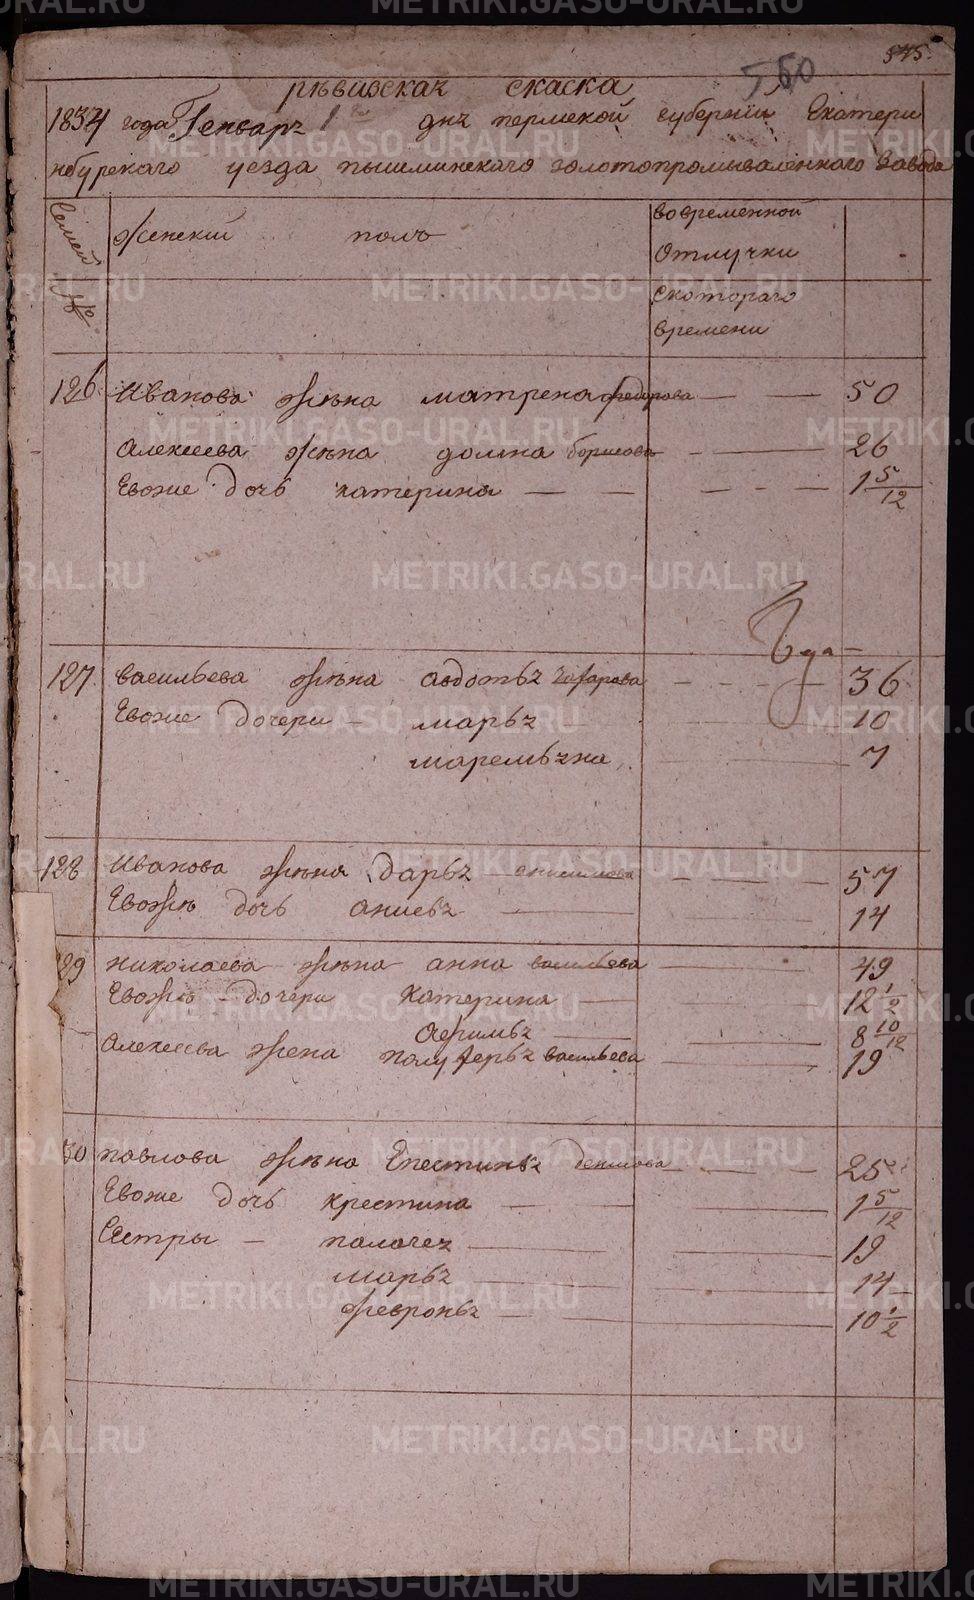 545.
550
ревизская скаска
1834 года Генваря 1 дня пермской губернии Екатери
нбурскаго уезда пышминскаго золотопромываленнаго завода
Семей №
женский полъ
вовременной
отлучки
скотораго
времени
126 Иванова жена матрена федорова — — 50
Алексеева жена домна борисова — 26
Евоже дочь катерина — — — — — 1 5/12
127 васильева жена авдотья захарова — — — 36
Евоже дочери — марья 10
маремьяна 7
128 Иванова жена дарья 57
Евоже дочь анисья 14
129 николаева жена анна васильева 49
Евоже дочери катерина 12 1/2
афимья 8 10/12
Алексеева жена полуферья васильева 19
130 павлова жена Епестинья 25
Евоже дочь крестина 1 5/12
Сестры — палагея 19
марья 14
февронья 10 1/2
METRIKI.GASO-URAL.RU